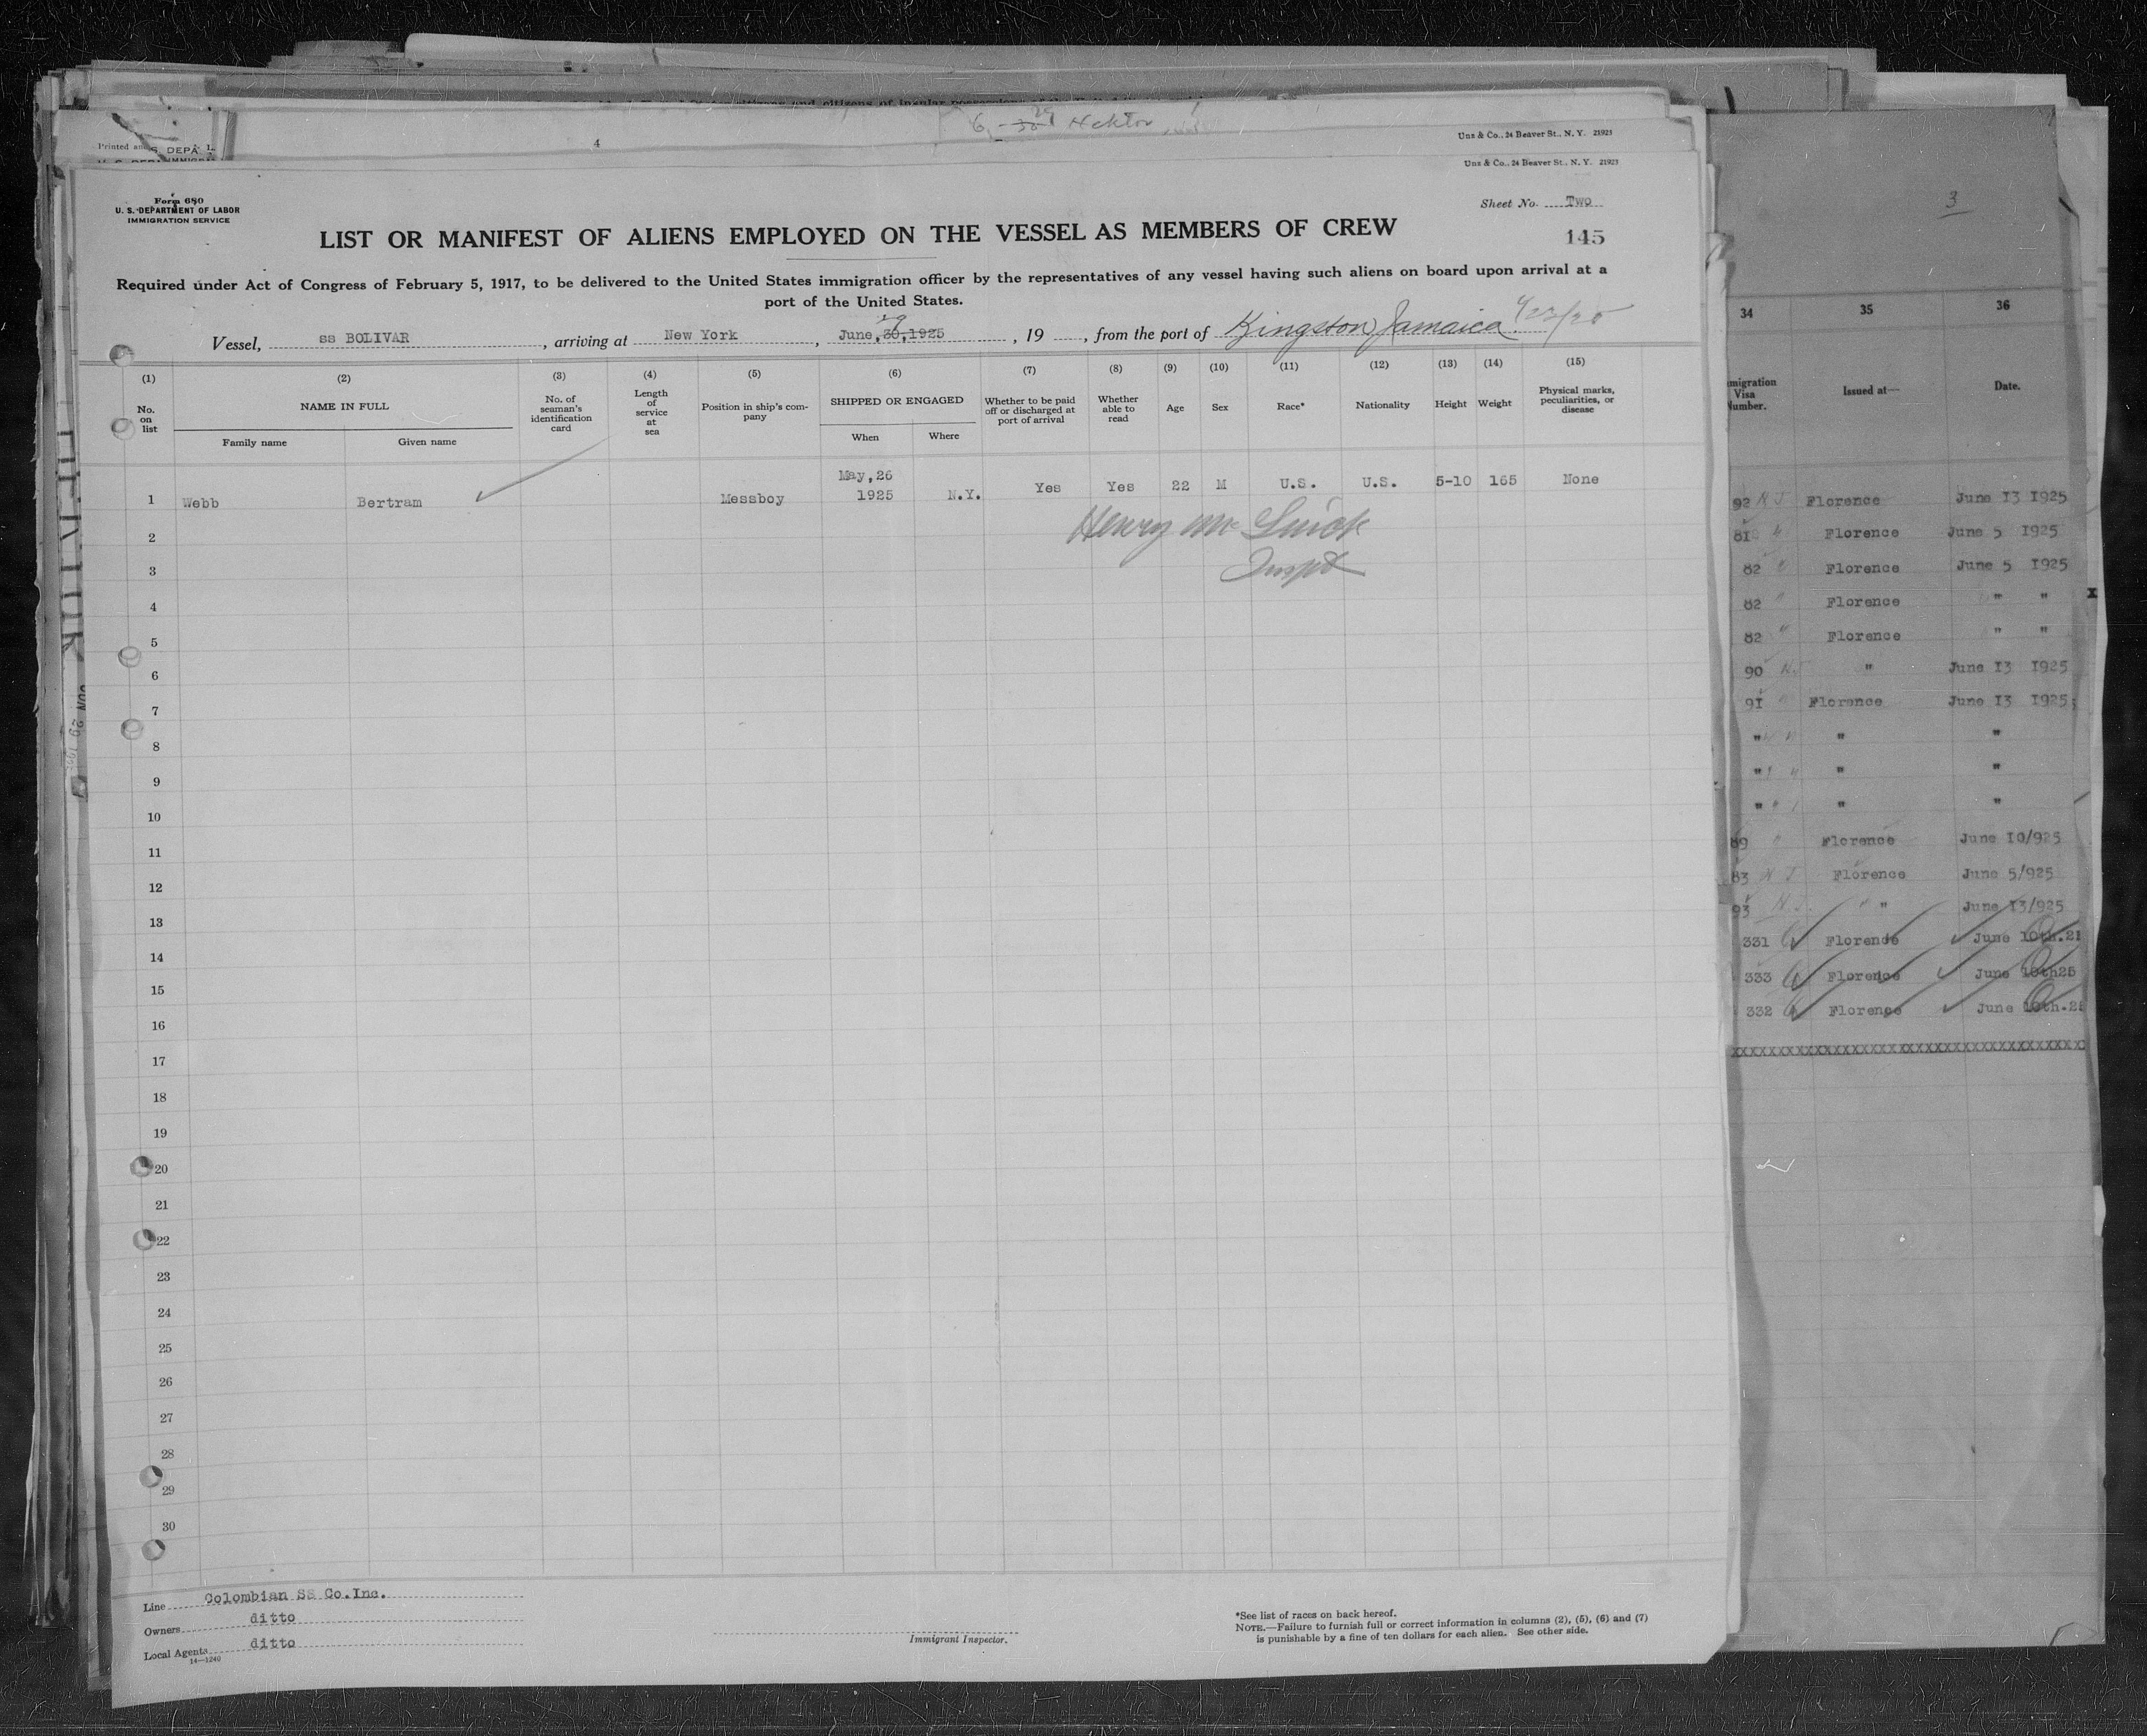 Hektor
4
Uns & Co., 24 Beaver St., N. Y. 21921
Uns & Co., 24 Beaver St., N. Y. 21923
Form 680
U. S. DEPARTMENT OF LABOR
IMMIGRATION SERVICE
Sheet No. Two
LIST OR MANIFEST OF ALIENS EMPLOYED ON THE VESSEL AS MEMBERS OF CREW
145
Required under Act of Congress of February 5, 1917, to be delivered to the United States immigration officer by the representatives of any vessel having such aliens on board upon arrival at a
port of the United States.
Vessel, ss BOLIVAR, arriving at New York, June, 30, 29, 1925, 19, from the port of Kingston Jamaica.
(1) (2) (3) (4) (5) (6) (7) (8) (9) (10) (11) (12) (13) (14) (15)
No. on list
NAME IN FULL
Family name Given name
No. of seaman's identification card
Length of service at sea
Position in ship's company
SHIPPED OR ENGAGED
When Where
Whether to be paid off or discharged at port of arrival
Whether able to read
Age
Sex
Race*
Nationality
Height
Weight
Physical marks, peculiarities, or disease
1 Webb Bertram Messboy May, 26 1925 N.Y. Yes Yes 22 M U.S. U.S. 5-10 165 None
2
Inspt
3
4
5
6
7
8
9
10
11
12
13
14
15
16
17
18
19
20
21
22
23
24
25
26
27
28
29
30
Line Colombian SS Co.Inc.
Owners ditto
Local Agents ditto
14—1240
Immigrant Inspector.
*See list of races on back hereof.
NOTE.—Failure to furnish full or correct information in columns (2), (5), (6) and (7)
is punishable by a fine of ten dollars for each alien. See other side.
3
34 35 36
Visa
Issued at—
Date.
92 Florence June I3 I925
8I Florence June 5 I925
82 Florence June 5 I925
82 Florence " "
82 Florence " "
90 " June I3 I925
9I Florence June I3 I925
" " "
" " "
" " "
89 Florence June I0/925
83 Florence June 5/925
93 " June I3/925
331 Florence June 10th.2
333 Florence June 10th25
332 Florence June 10th.2